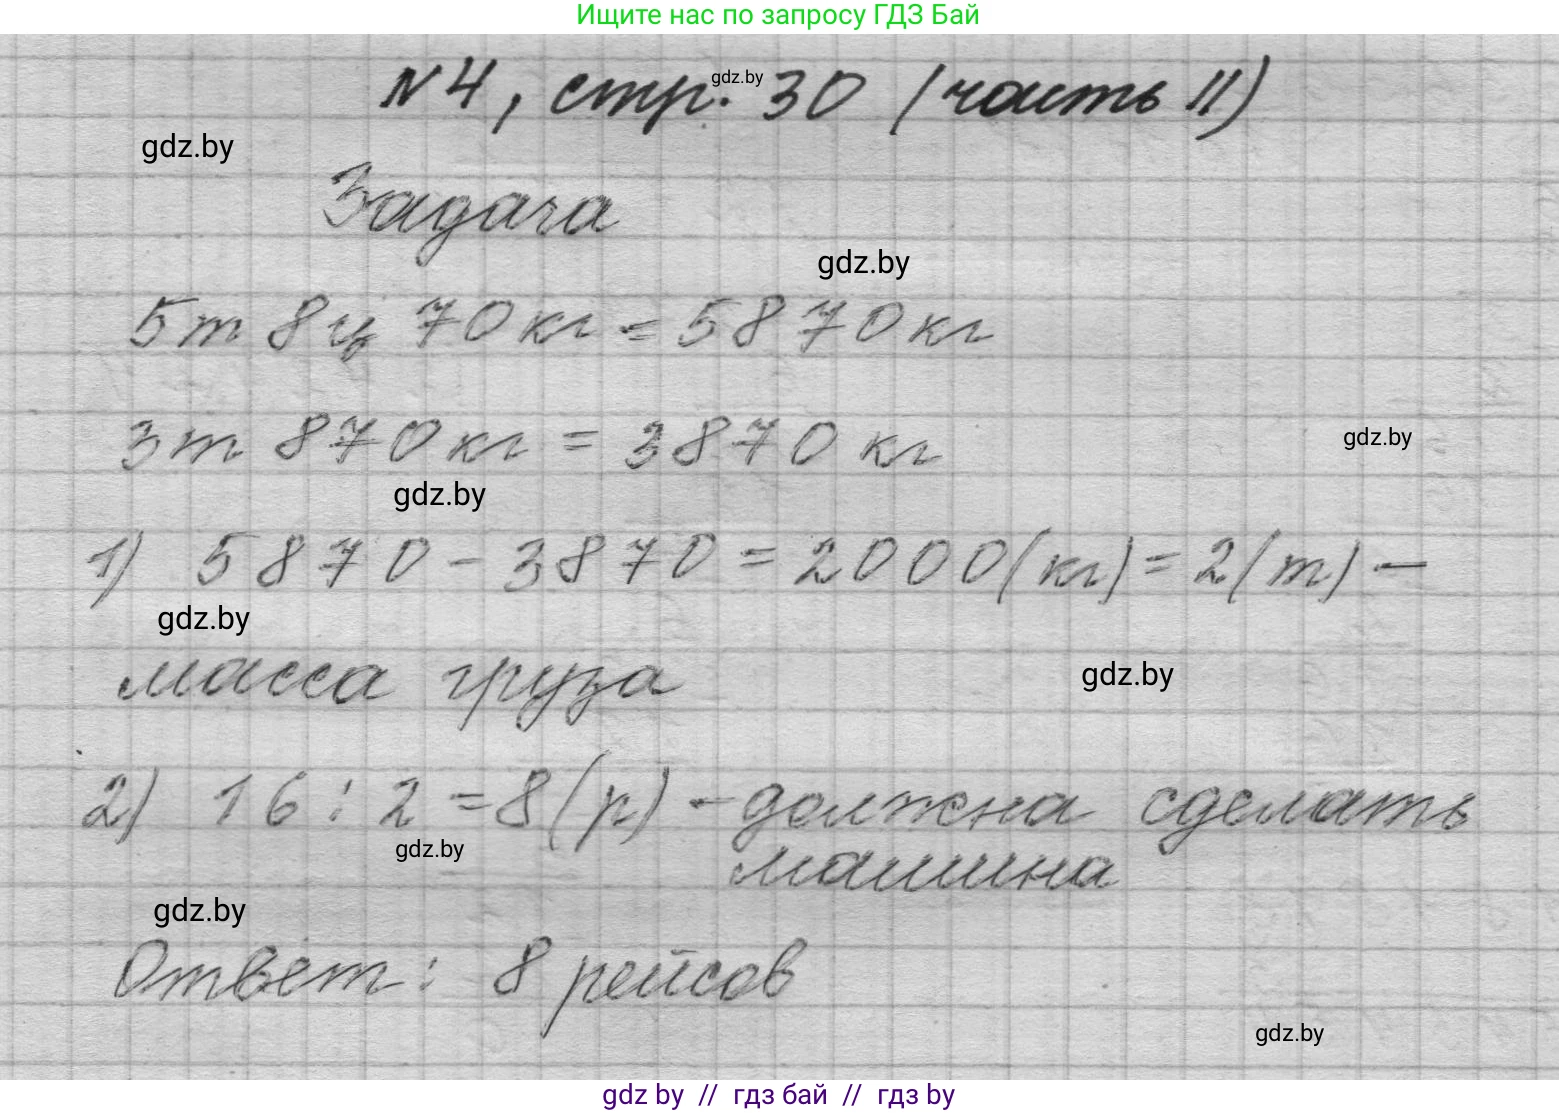 Ищите нас по запросу ГДЗ Бай
N4, стр. 30 (часть II)
gdz.by
gdz.by
Задача
gdz.by
5т 8ц 70кг = 5870кг
3т 870кг = 3870 кг
gdz.by
gdz.by
1) 5870 - 3870 = 2000(кг) = 2(т) -
gdz.by
масса груза
gdz.by
2) 16 : 2 = 8(р) - должна сделать
машина
gdz.by
gdz.by
Ответ: 8 рейсов
gdz.by
gdz by // гдз бай // гдз by